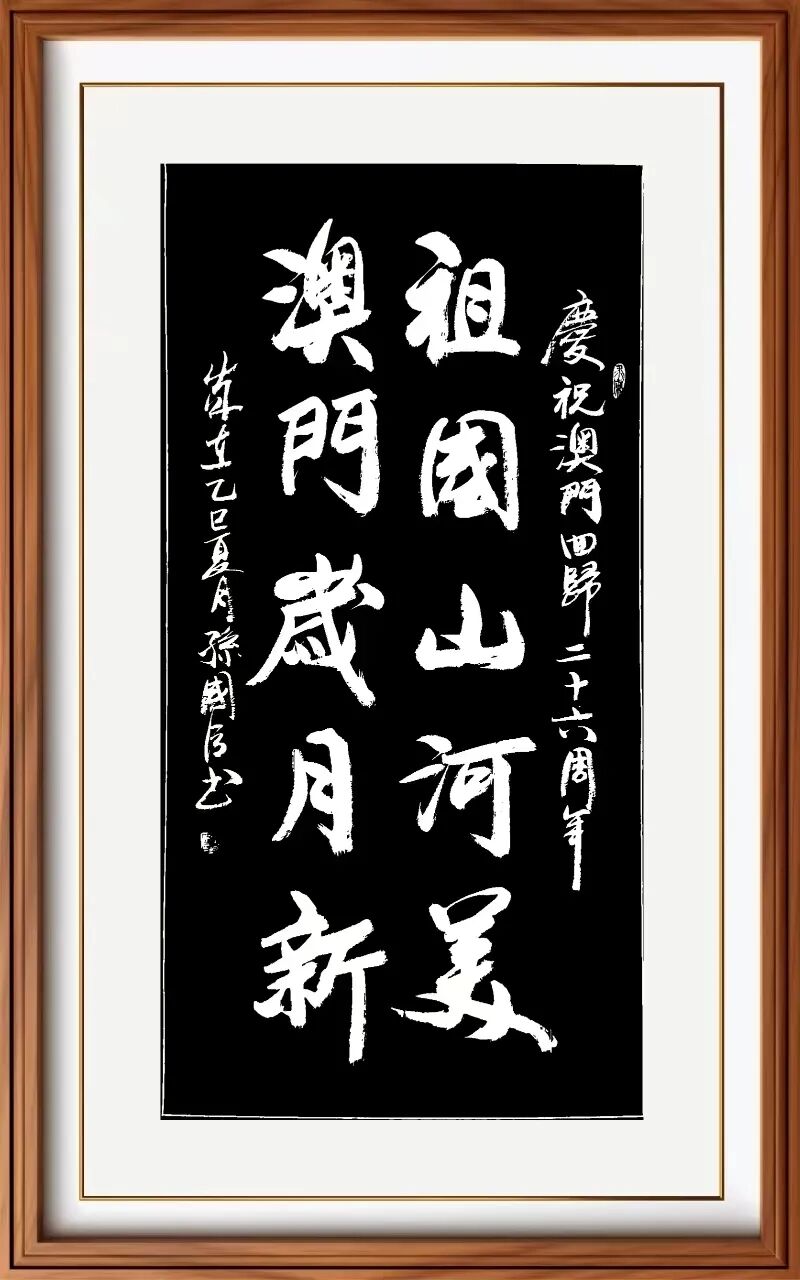 慶祝澳門回歸二十六周年
祖國山河美
澳門歲月新
歲在乙巳夏月孫國友書